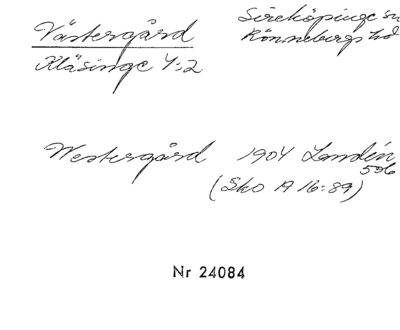 Västergård
Sireköpinge sn
Kläsinge 4:2
Rönnebergs hd
Westergård 1904 Landén
506
(Sko A 16:89)
Nr 24084